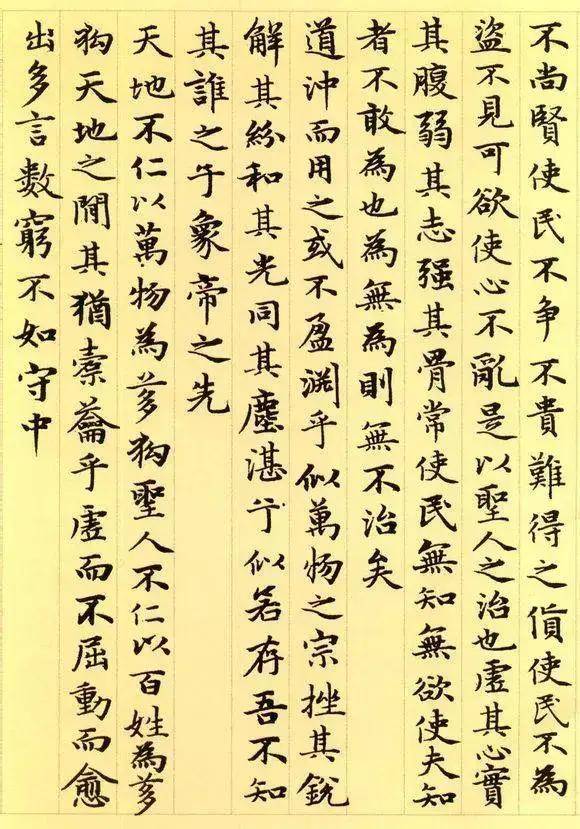 不尚賢使民不争不貴難得之貨使民不為
盜不見可欲使心不亂是以聖人之治也虛其心實
其腹弱其志强其骨常使民無知無欲使夫知
者不敢為也為無為則無不治矣
道沖而用之或不盈淵乎似萬物之宗挫其銳
解其紛和其光同其塵湛兮似若存吾不知
其誰之子象帝之先
天地不仁以萬物為芻狗聖人不仁以百姓為芻
狗天地之間其猶橐蘥乎虛而不屈動而愈
出多言數窮不如守中